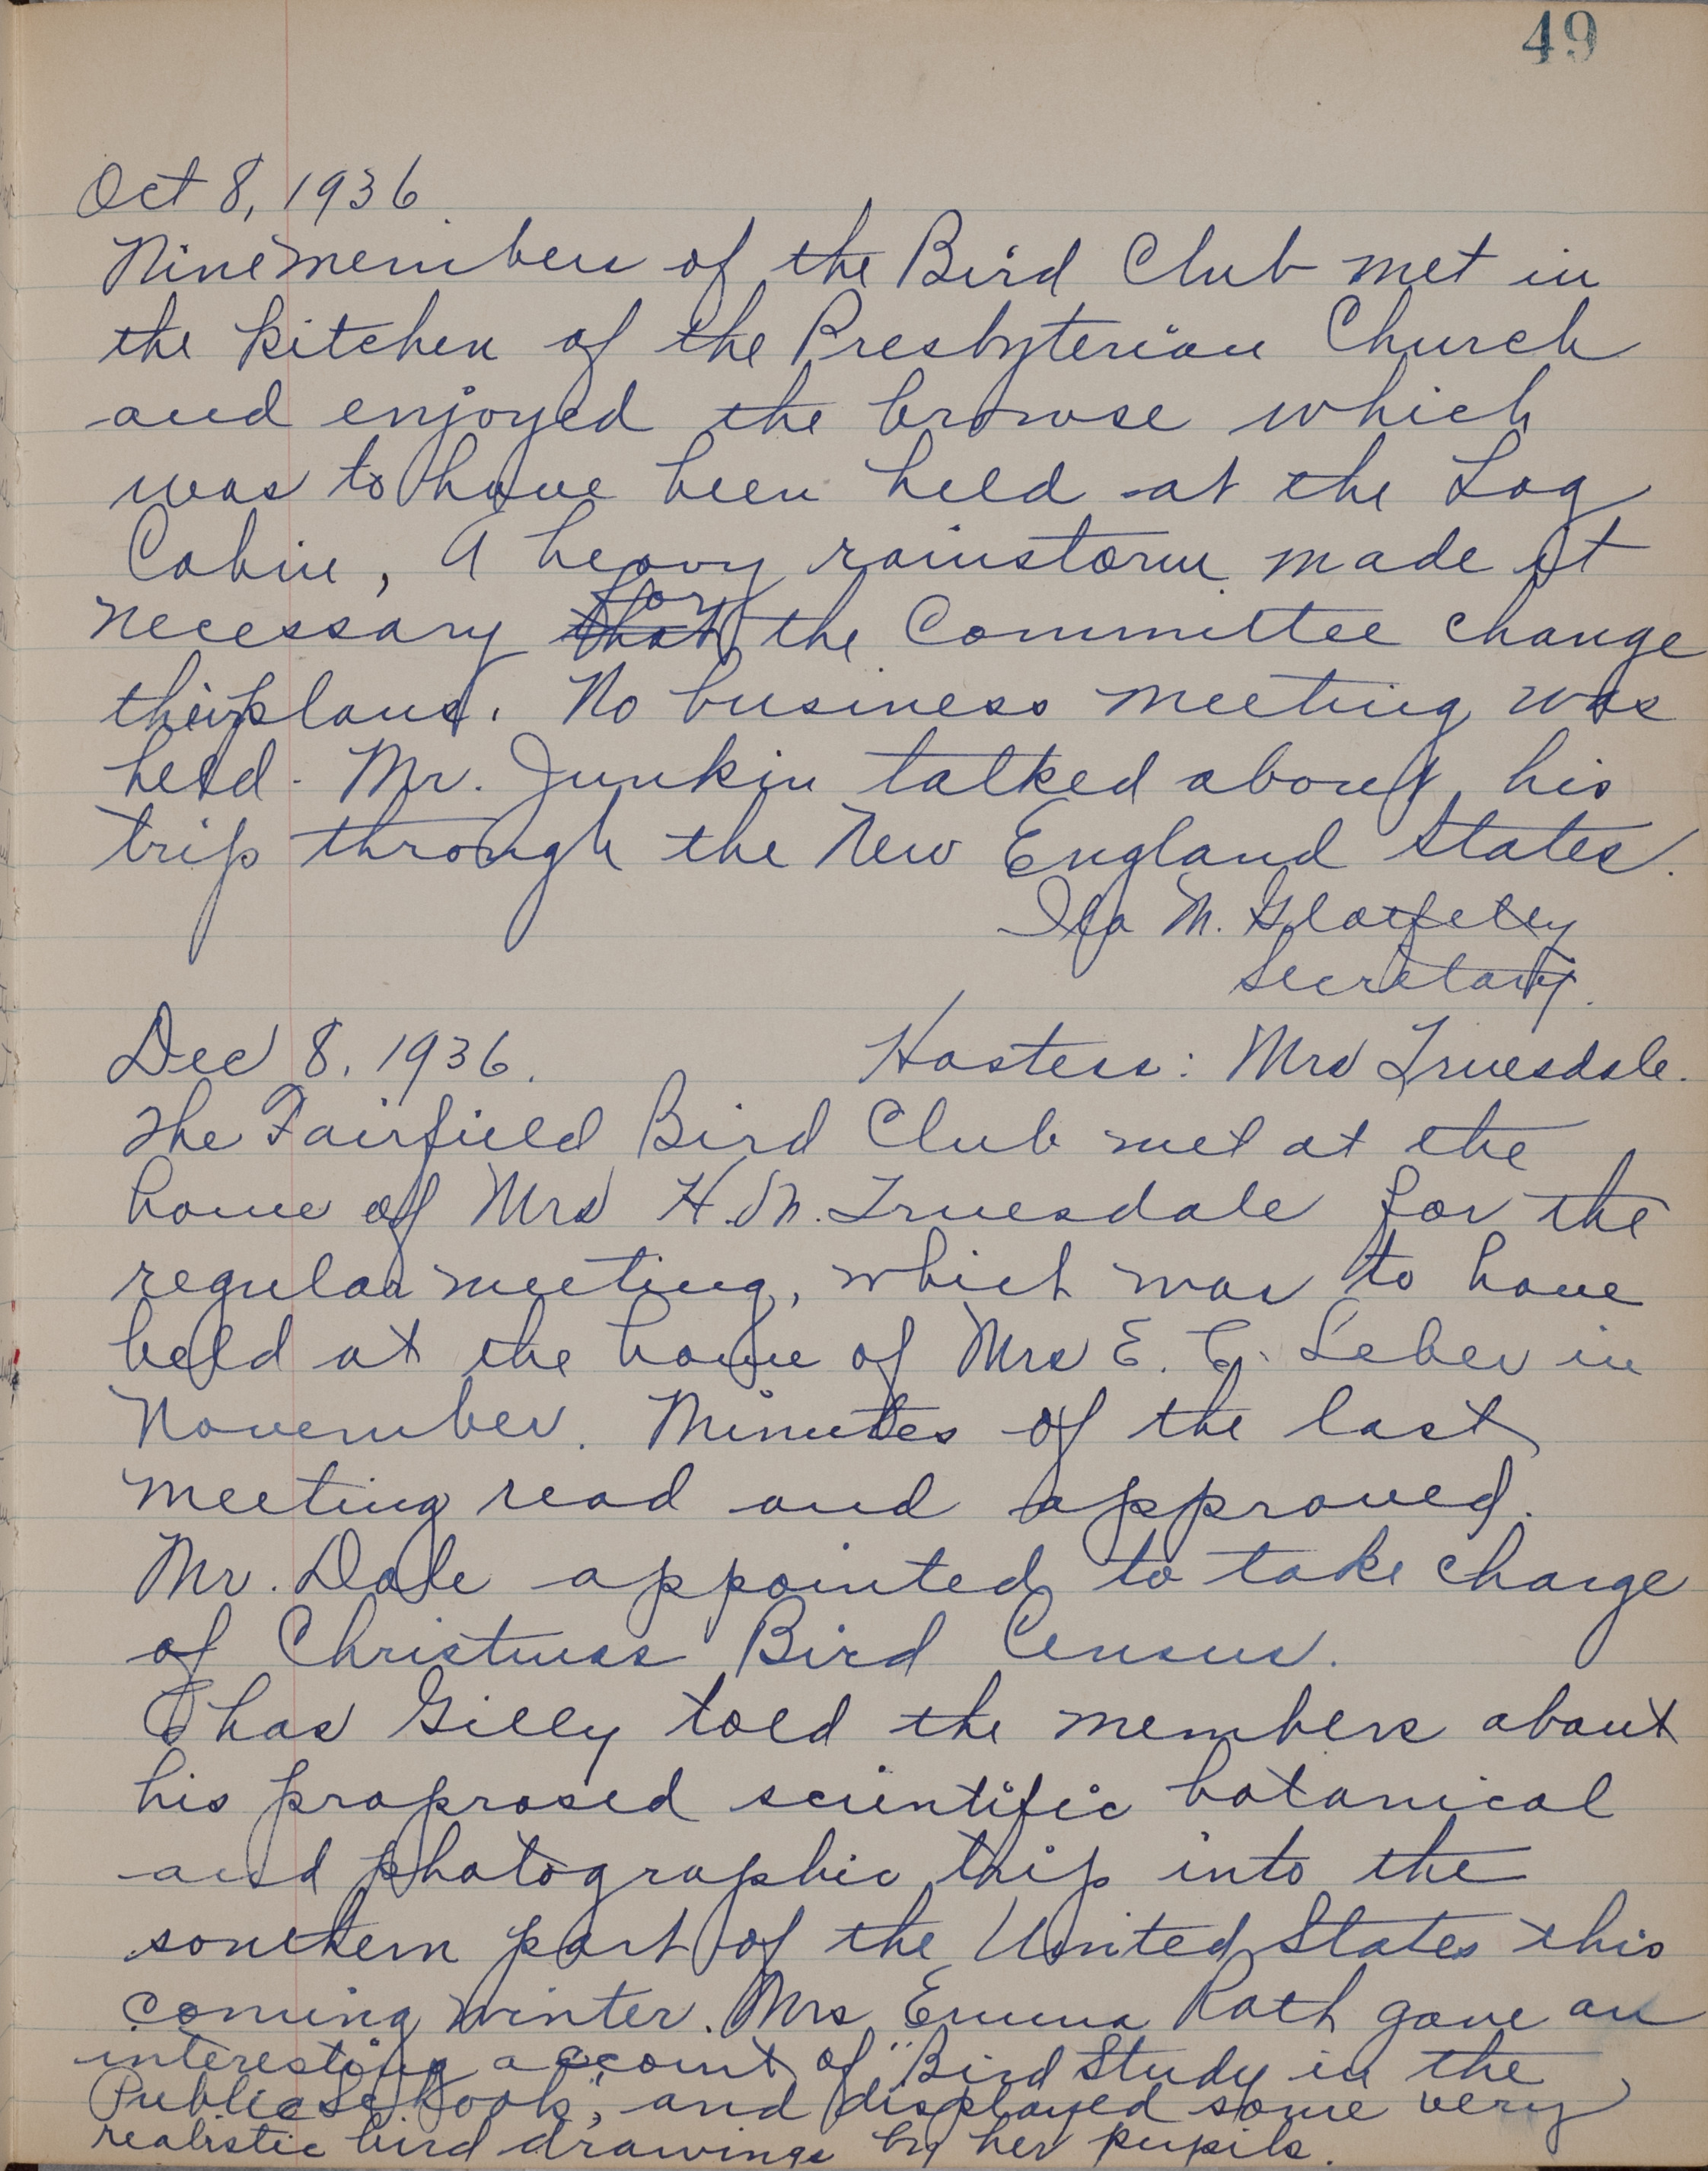 49
Oct 8, 1936.
Nine members of the Bird Club met in
the kitchen of the Presbyterian Church
and enjoyed the browse which
was to have been held at the Log
Cabin, A heavy rainstorm made it
necessary that for the Committee change
their plans. No business meeting was
held. Mr. Junkin talked about his
trip through the New England States.
Ila M. Glatfelty
Secretary.
Dec 8, 1936. Hostess: Mrs Truesdale.
The Fairfield Bird Club met at the
home of Mrs H.M. Truesdale for the
regular meeting, which was to have
held at the home of Mrs E. C. Leber in
November. Minutes of the last
meeting read and approved.
Mr. Dale appointed to take charge
of Christmas Bird Census.
Chas Gilly told the members about
his proprosed scientific botanical
and photographic trip into the
southern part of the United States this
coming winter. Mrs Emma Rath gave an
interesting account of "Bird Study in the
Public School", and displayed some very
realistic bird drawings by her pupils.